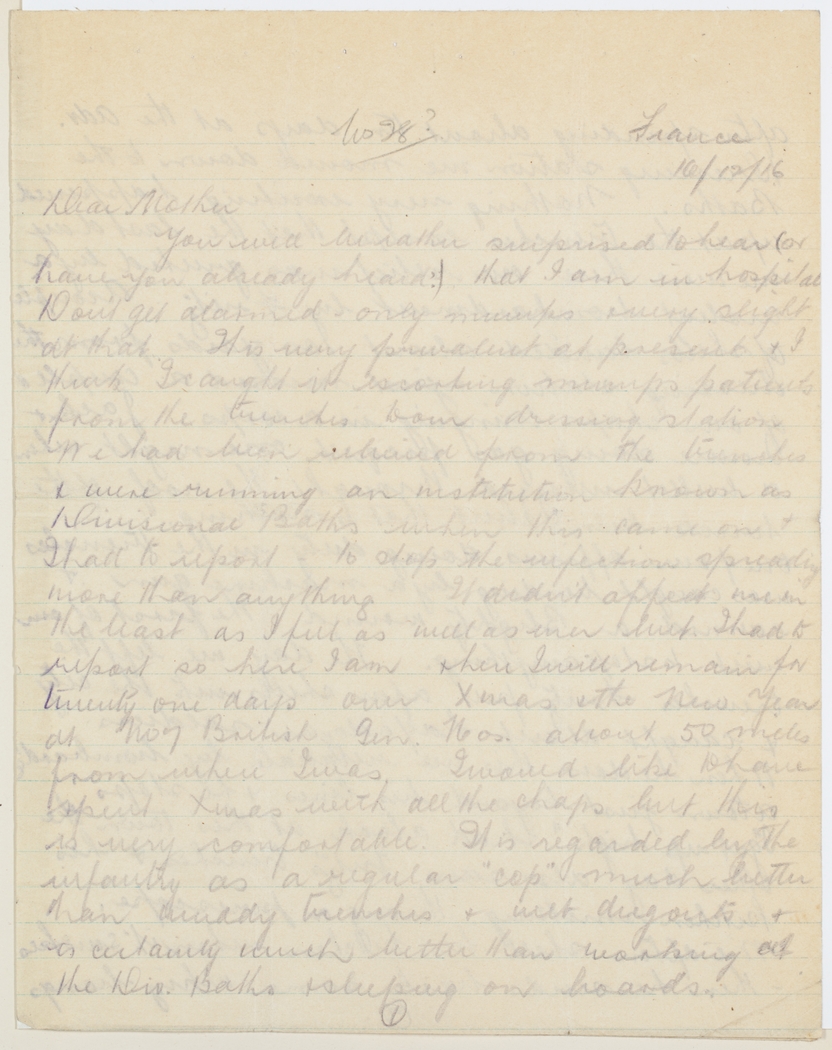 No 28?
France
16/12/16
Dear Mother
You will be rather surprised to hear (or
have you already heard?) that I am in hospital
Don't get alarmed - only mumps & very slight
at that. It is very prevalent at present & I
think I caught it escorting mumps patients
from the trenches to our dressing station
We had been relieved from the trenches
& were running an institution known as
Divisional Baths when this came on &
I had to report - to stop the infection spreading
more than anything. It didn't affect me in
the least as I felt as well as ever but I had to
report so here I am & here I will remain for
twenty one days over Xmas & the New Year
at No 7 British Gen. Hos. about 50 miles
from where I was. I would like to have
spent Xmas with all the chaps but this
is very comfortable. It is regarded by the
infantry as a regular "cop" much better
than muddy trenches & wet dugouts &
is certainly much better than working at
the Div. Baths & sleeping on boards.
1